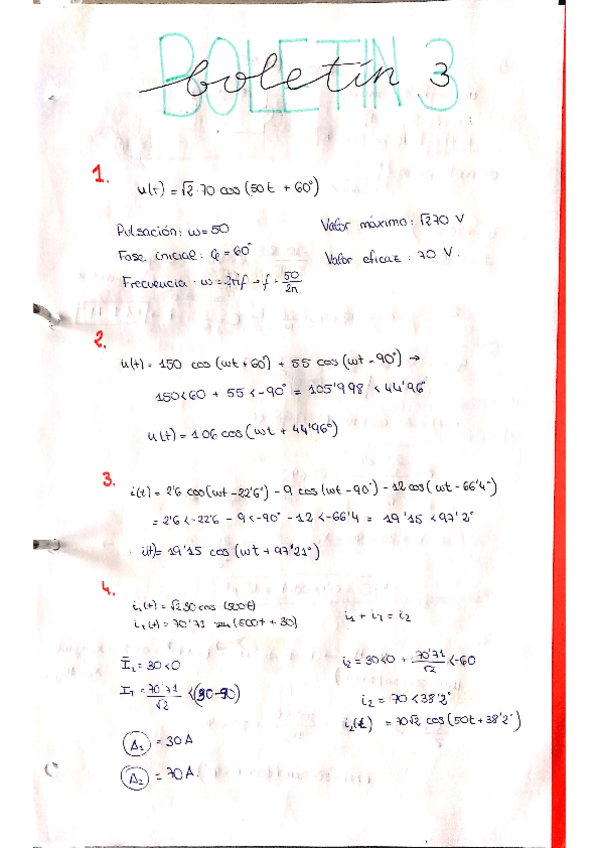 BOLETIN 3
boletín 3
1.
u(t) = √2·70 cos (50t + 60°)
Pulsación: ω = 50
Valor máximo: √270 V
Fase inicial: φ = 60°
Valor eficaz: 70 V.
Frecuencia: ω = 2πf → f = 50/2π
2.
u(t) = 150 cos (ωt + 60°) + 55 cos (ωt - 90°) →
150<60 + 55<-90° = 105'998 <44'96°
u(t) = 106 cos (ωt + 44'96°)
3.
i(t) = 2'6 cos(ωt - 22'6°) - 9 cos (ωt - 90°) - 12 cos (ωt - 66'4°)
= 2'6<-22'6 - 9<-90° - 12<-66'4 = 19'15 <97'2°
i(t) = 19'15 cos (ωt + 97'21°)
4.
i₁(t) = √2 30 cos (500t)
(t) = 70'71 sen (500t + 30)
= i₂
Ī₁ = 30<0
i₂ = 30<0 + 70'71/√2 <-60
= 70'71/√2 <(30-90)
i₂ = 70 <38'2°
i₂(t) = 70√2 cos (50t + 38'2°)
A₁ = 30 A
A₂ = 70 A.